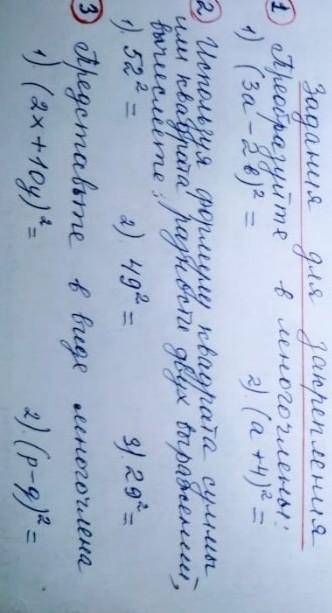 Задания для закрепления
① Преобразуйте в многочлены:
1) (3а - 2в)² = 2) (а + 4)² =
② Используя формулу квадрата суммы
или квадрата разности двух выражений,
вычислите:
1) 52² = 2) 49² = 3) 29² =
③ Представьте в виде многочлена
1) (2х + 10у)² = 2) (р - q)² =